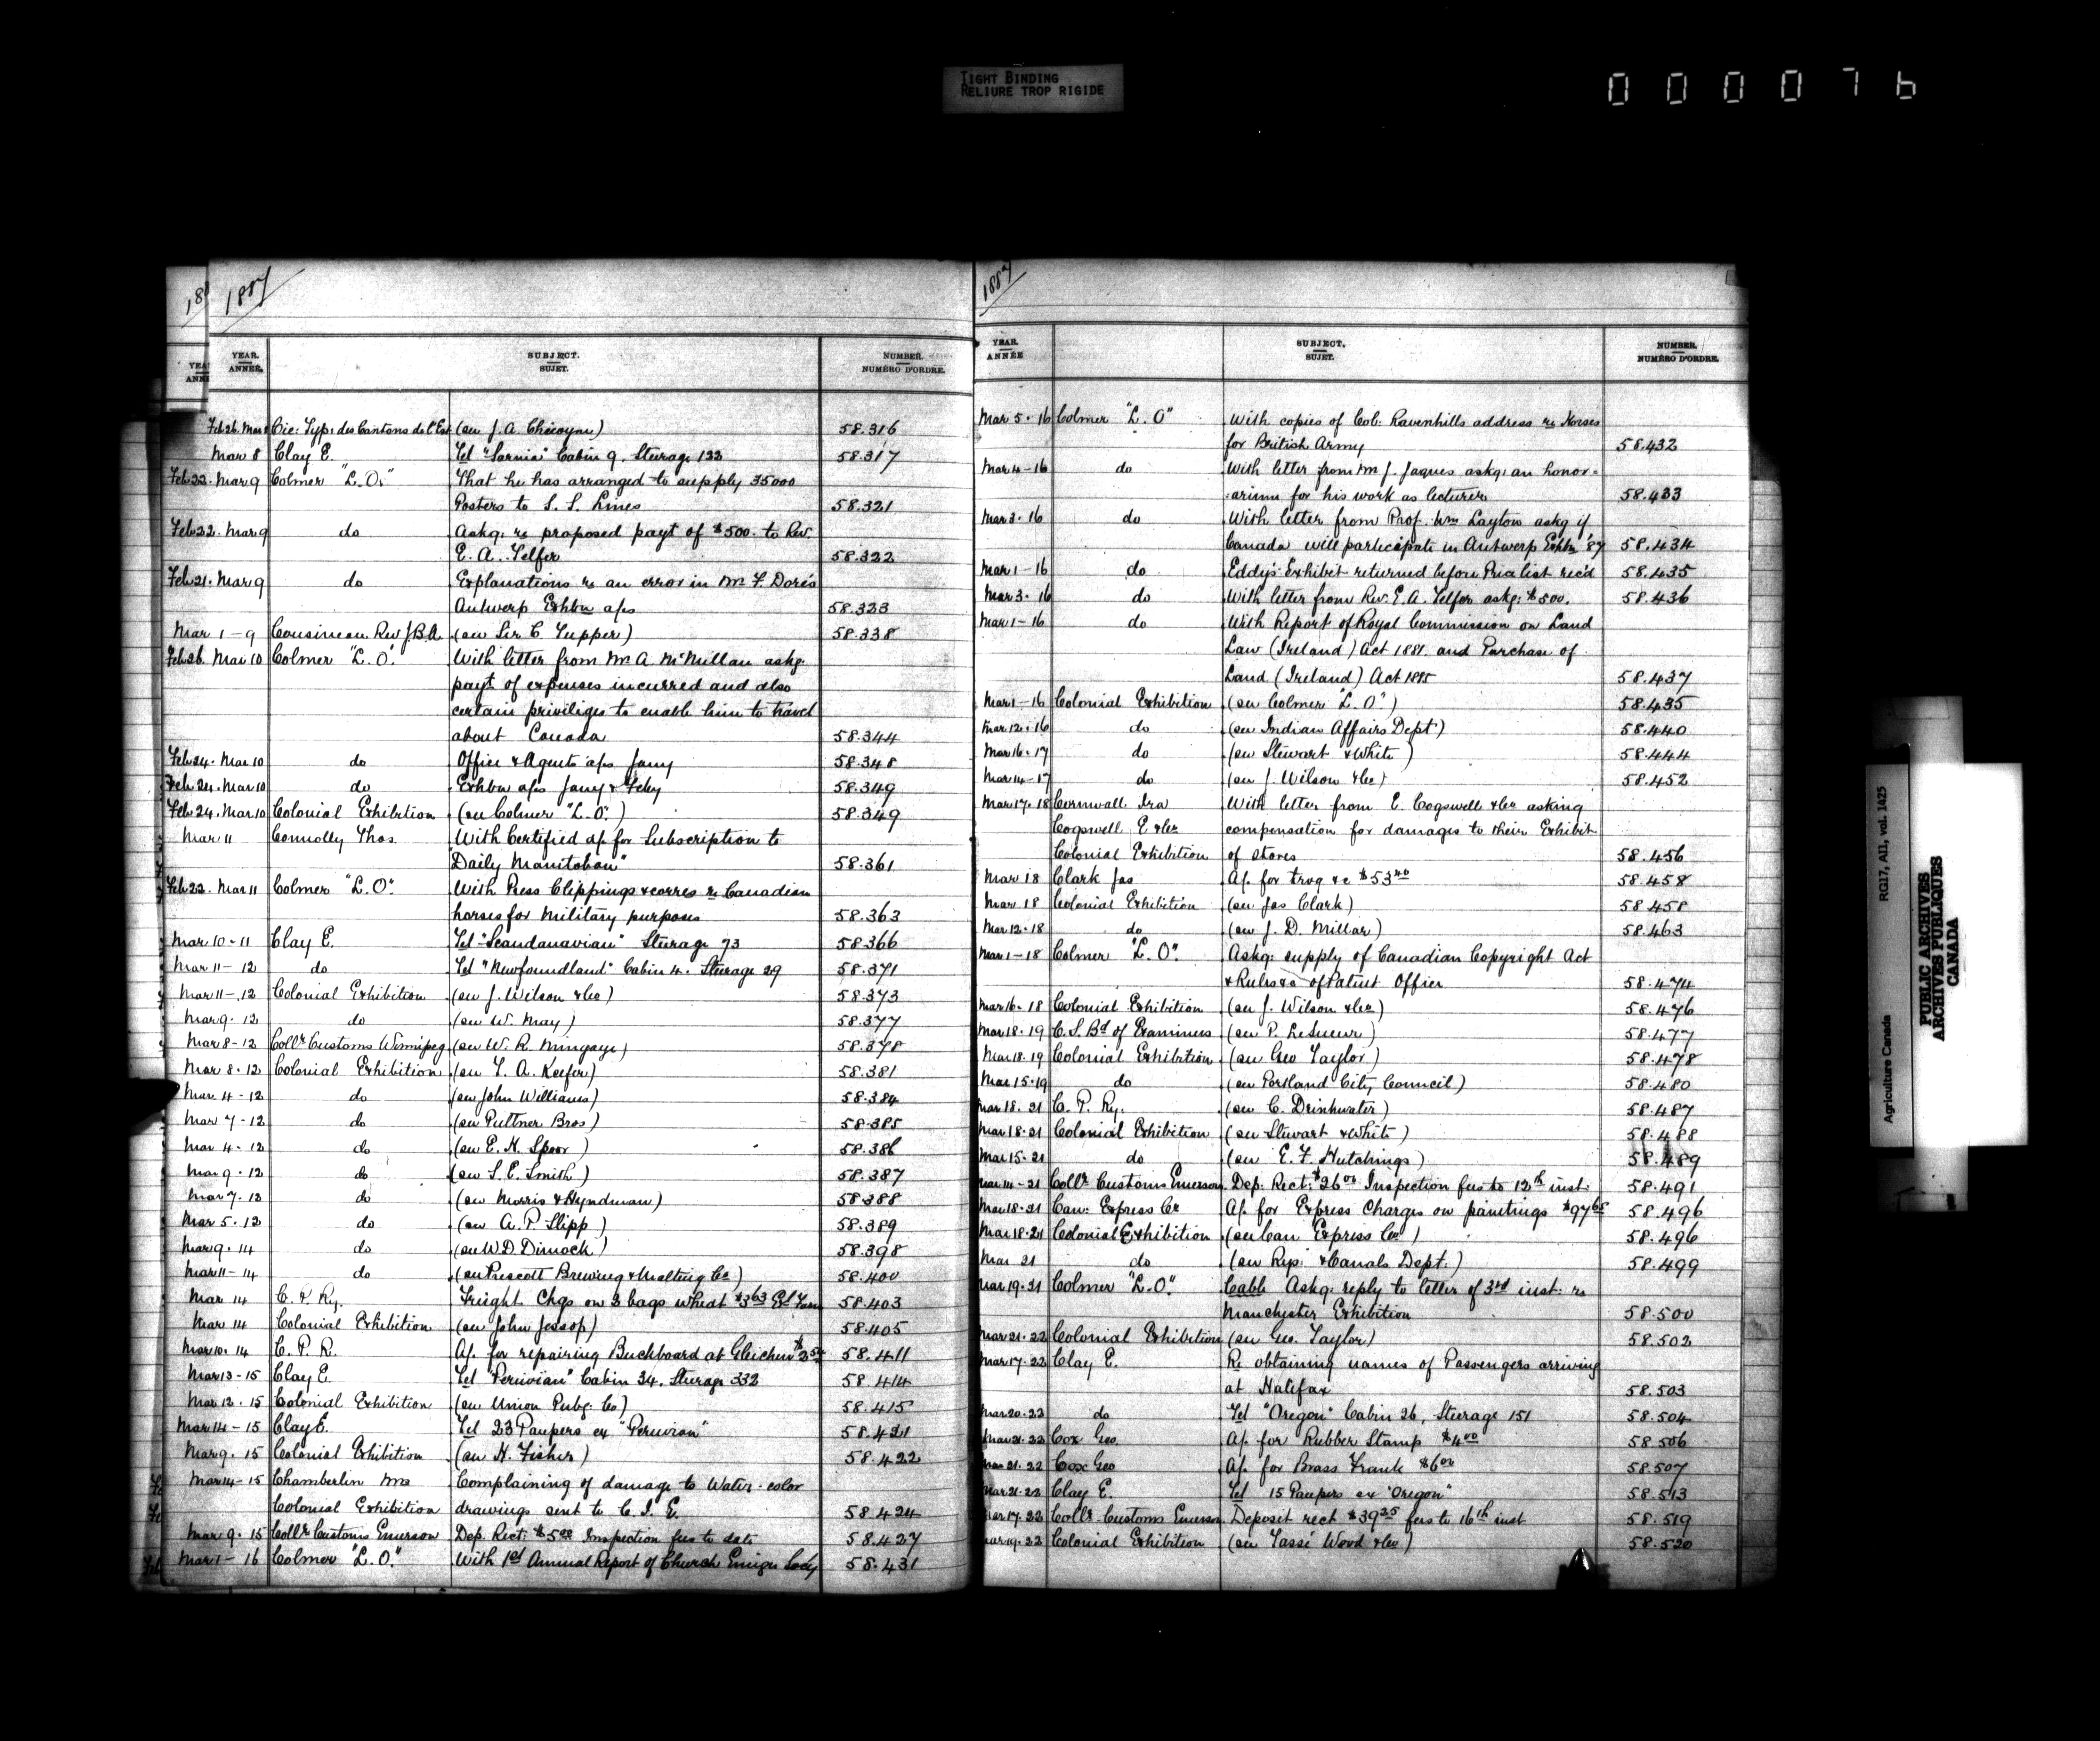 TIGHT BINDING
RELIURE TROP RIGIDE
000076
1887
YEAR. ANNÉE. SUBJECT. SUJET. NUMBER. NUMÉRO D'ORDRE.
Feb 26. Mar 8 Cie: Typ: des Cantons de l'Est (en J. A. Chicoyne) 58.316
Mar 8 Clay E. Tel "Sarnia" Cabin 9. Steerage 122 58.317
Feb 22. Mar 9 Colmer "L.O." That he has arranged to supply 35000
Posters to S. S. Lines 58.321
Feb 22. Mar 9 do Askg. re proposed payt of $500. to Rev.
E. A. Telfer 58.322
Feb 21. Mar 9 do Explanations re an error in Mr F. Dore's
Antwerp Exhbn a/cs 58.323
Mar 1-9 Cousineau Rev J.B.A. (en Sir C. Tupper) 58.338
Feb 26. Mar 10 Colmer "L.O." With letter from Mr A. McMillan askg.
payt of expenses incurred and also
certain priviliges to enable him to travel
about Canada 58.344
Feb 24. Mar 10 do Office & Agents a/cs Jany 58.348
Feb 24. Mar 10 do Exhbn a/cs Jany & Feby 58.349
Feb 24. Mar 10 Colonial Exhibition (en Colmer "L.O.") 58.349
Mar 11 Connolly Thos. With Certified a/c for Subscription to
"Daily Manitoban" 58.361
Feb 22. Mar 11 Colmer "L.O." With Press Clippings & corres re Canadian
horses for Military purposes 58.363
Mar 10-11 Clay E. Tel "Scandanavian" Steerage 73 58.366
Mar 11-12 do Tel "Newfoundland" Cabin 4. Steerage 29 58.371
Mar 11-12 Colonial Exhibition (en J. Wilson & Co) 58.373
Mar 9. 12 do (en W. May) 58.377
Mar 8-12 Collr Customs Winnipeg (en W. R. Mingaye) 58.378
Mar 8. 12 Colonial Exhibition (en T. A. Keefer) 58.381
Mar 4-12 do (en John Williams) 58.384
Mar 7-12 do (en Puttner Bros) 58.385
Mar 4-12 do (en E. H. Spoor) 58.386
Mar 9. 12 do (en S. E. Smith) 58.387
Mar 7. 12 do (en Morris & Hyndman) 58.388
Mar 5. 12 do (en A. P. Slipp) 58.389
Mar 9. 14 do (en W. D. Dimock) 58.398
Mar 11-14 do (en Prescott Brewing & Malting Co) 58.400
Mar 14 C. P. Ry. Freight Chgs on 3 bags wheat $3 63 58.403
Mar 14 Colonial Exhibition (en John Jessop) 58.405
Mar 10. 14 C. P. R. A/c for repairing Buckboard at Gleichen 58.411
Mar 13-15 Clay E. Tel "Peruvian" Cabin 34. Steerage 332 58.414
Mar 12. 15 Colonial Exhibition (en Union Pubg. Co) 58.415
Mar 14-15 Clay E. Tel 23 Paupers ex "Peruvian" 58.421
Mar 9. 15 Colonial Exhibition (en H. Fisher) 58.422
Mar 14-15 Chamberlin Mrs Complaining of damage to Water-color
Colonial Exhibition drawings sent to C. I. E. 58.424
Mar 9. 15 Collr Customs Emerson Dep. Rect: $5 00 Inspection fees to date 58.427
Mar 1-16 Colmer "L.O." With 1st Annual Report of Church Emign Socy 58.431
1887
YEAR. ANNÉE SUBJECT. SUJET. NUMBER. NUMÉRO D'ORDRE.
Mar 5. 16 Colmer "L.O" With copies of Col: Ravenhills address re Horses
for British Army 58.432
Mar 4-16 do With letter from Mr J. Jaques askg: an honor-
:arium for his work as lecturer 58.433
Mar 3. 16 do With letter from Prof. Wm Layton askg if
Canada will participate in Antwerp Exhbn '87 58.434
Mar 1-16 do Eddy's Exhibit returned before Price list rec'd 58.435
Mar 3. 16 do With letter from Rev. E. A. Telfer askg: $500. 58.436
Mar 1-16 do With Report of Royal Commission on Land
Law (Ireland) Act 1881. and Purchase of
Land (Ireland) Act 1885 58.437
Mar 1-16 Colonial Exhibition (en Colmer "L.O.") 58.435
Mar 12. 16 do (en Indian Affairs Dept) 58.440
Mar 16. 17 do (en Stewart & White) 58.444
Mar 14-17 do (en J. Wilson & Co) 58.452
Mar 17. 18 Cornwall Ira With letter from E. Cogswell & Co asking
Cogswell E & Co compensation for damages to their Exhibit
Colonial Exhibition of stoves 58.456
Mar 18 Clark Jas A/c for trvg &c $53 40 58.458
Mar 18 Colonial Exhibition (en Jas Clark) 58.458
Mar 12. 18 do (en J. D. Millar) 58.463
Mar 1-18 Colmer "L.O". Askg: supply of Canadian Copyright Act
& Rules &c of Patent Office 58.474
Mar 16. 18 Colonial Exhibition (en J. Wilson & Co) 58.476
Mar 18. 19 C. S. Bd of Examiners (en P. LeSueur) 58.477
Mar 18. 19 Colonial Exhibition (en Geo Taylor) 58.478
Mar 15. 19 do (en Portland City Council) 58.480
Mar 18. 21 C. P. Ry. (en C. Drinkwater) 58.487
Mar 18. 21 Colonial Exhibition (en Stewart & White) 58.488
Mar 15. 21 do (en E. F. Hutchings) 58.489
Mar 14-21 Collr Customs Emerson. Dep: Rect: $26 00 Inspection fees to 12th inst: 58.491
Mar 18. 21 Can: Express Co A/c for Express Charges on paintings $97 65 58.496
Mar 18. 21 Colonial Exhibition (en Can Express Co) 58.496
Mar 21 do (en Rys & Canals Dept.) 58.499
Mar 19. 21 Colmer "L.O". Cable Askg: reply to letter of 3rd inst: re
Manchester Exhibition 58.500
Mar 21. 22 Colonial Exhibition (en Geo. Taylor) 58.502
Mar 17. 22 Clay E. Re obtaining names of Passengers arriving
at Halifax 58.503
Mar 20. 22 do Tel "Oregon" Cabin 26, Steerage 151 58.504
Mar 21. 22 Cox Geo. A/c for Rubber Stamp $4 00 58.506
Mar 21. 22 Cox Geo A/c for Brass Frank $6 00 58.507
Mar 21. 22 Clay E. Tel 15 Paupers ex "Oregon" 58.513
Mar 17. 22 Collr Customs Emerson. Deposit rect $39 25 fees to 16th inst 58.519
Mar 19. 22 Colonial Exhibition (en Tassé Wood & Co) 58.520
Agriculture Canada RG17, AII, vol. 1425
PUBLIC ARCHIVES
ARCHIVES PUBLIQUES
CANADA